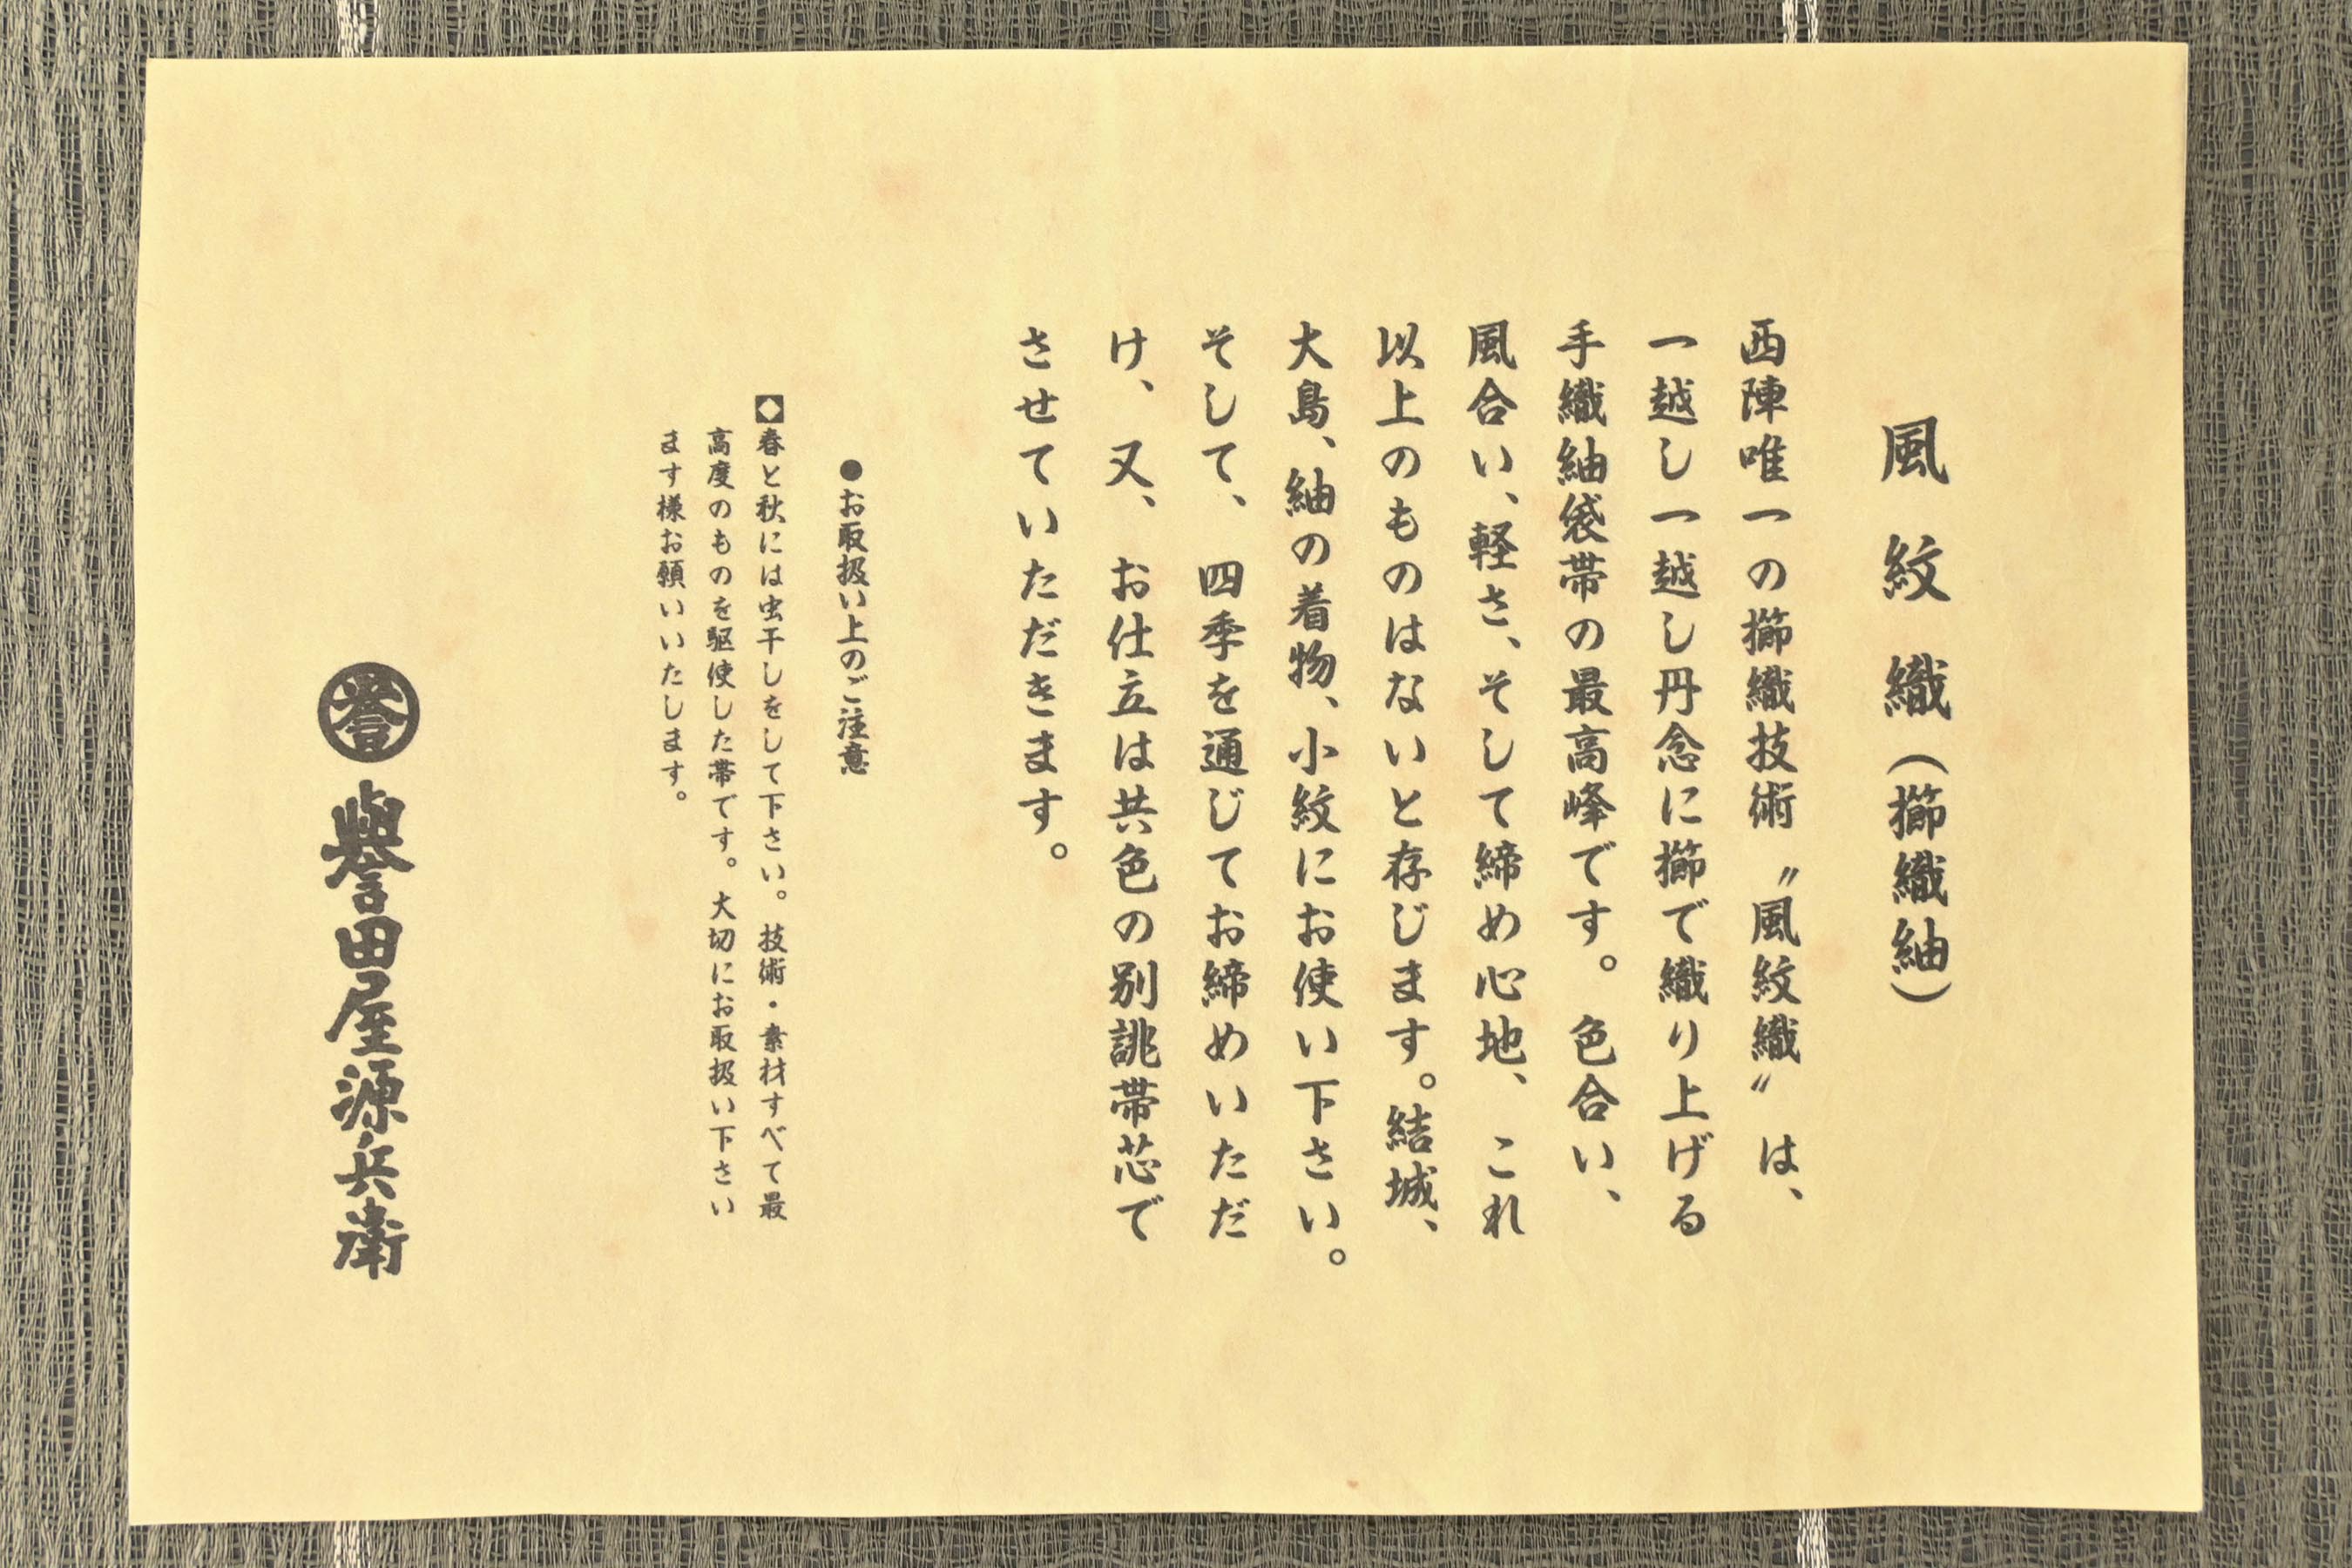 風紋織(櫛織紬)
西陣唯一の櫛織技術〝風紋織〟は、
一越し一越し丹念に櫛で織り上げる
手織紬袋帯の最高峰です。色合い、
風合い、軽さ、そして締め心地、これ
以上のものはないと存じます。結城、
大島、紬の着物、小紋にお使い下さい。
そして、四季を通じてお締めいただ
け、又、お仕立は共色の別誂帯芯で
させていただきます。
●お取扱い上のご注意
春と秋には虫干しをして下さい。技術・素材すべて最
高度のものを駆使した帯です。大切にお取扱い下さい
ます様お願いいたします。
誉
譽田屋源兵衛